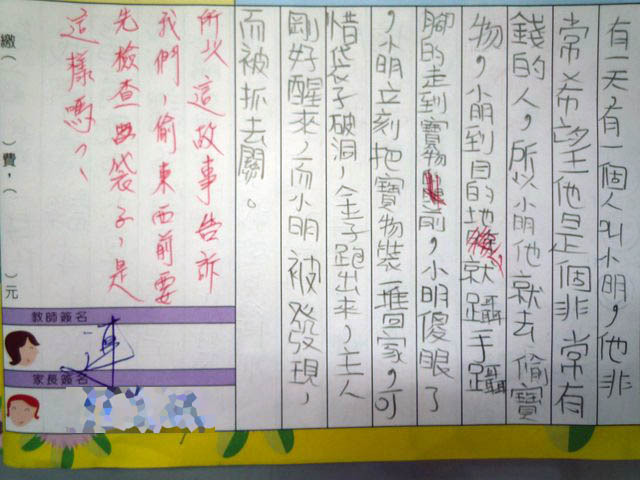 有一天有一個人叫小明，他非
常希望他是個非常有
錢的人，所以小明他就去偷寶
物，小明到目的地後就躡手躡
腳的走到寶物前，小明傻眼了
，小明立刻把寶物裝一番回家，可
惜袋子破洞，金子跑出來，主人
剛好醒來，而小明被發現，
而被抓去關。
所以這故事告訴
我們，偷東西前要
先檢查袋子，是
這樣嗎？
繳（ ）費，（ ）元
教師簽名
連
家長簽名